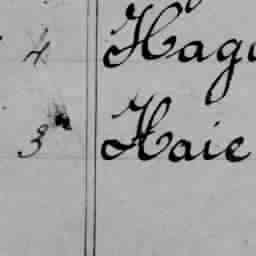 4 Hag
3 Haie